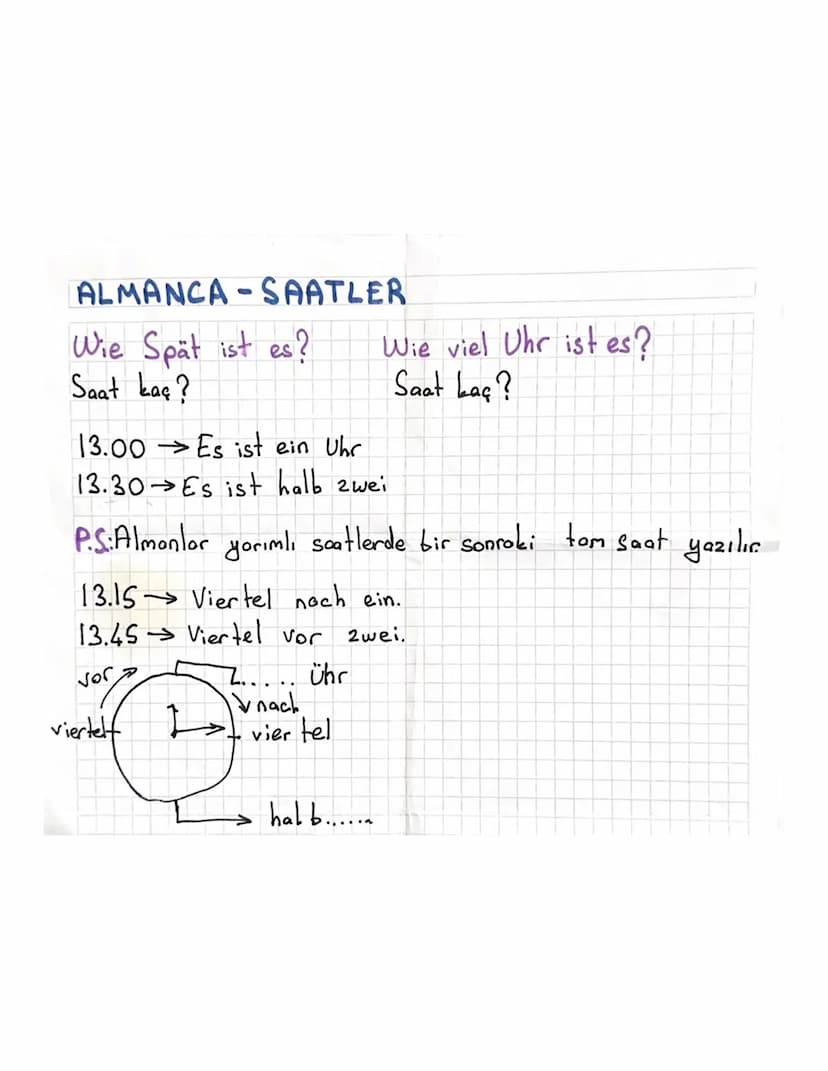 ALMANCA - SAATLER
Wie Spät ist es? Wie viel Uhr ist es?
Saat kaç? Saat kaç?
13.00 → Es ist ein Uhr
13.30 → Es ist halb zwei
P.S: Almanlar yarımlı saatlerde bir sonraki tam saat yazılır
13.15 → Viertel nach ein.
13.45 → Viertel vor zwei.
vor ..... Ühr
nach
viertel viertel
halb......